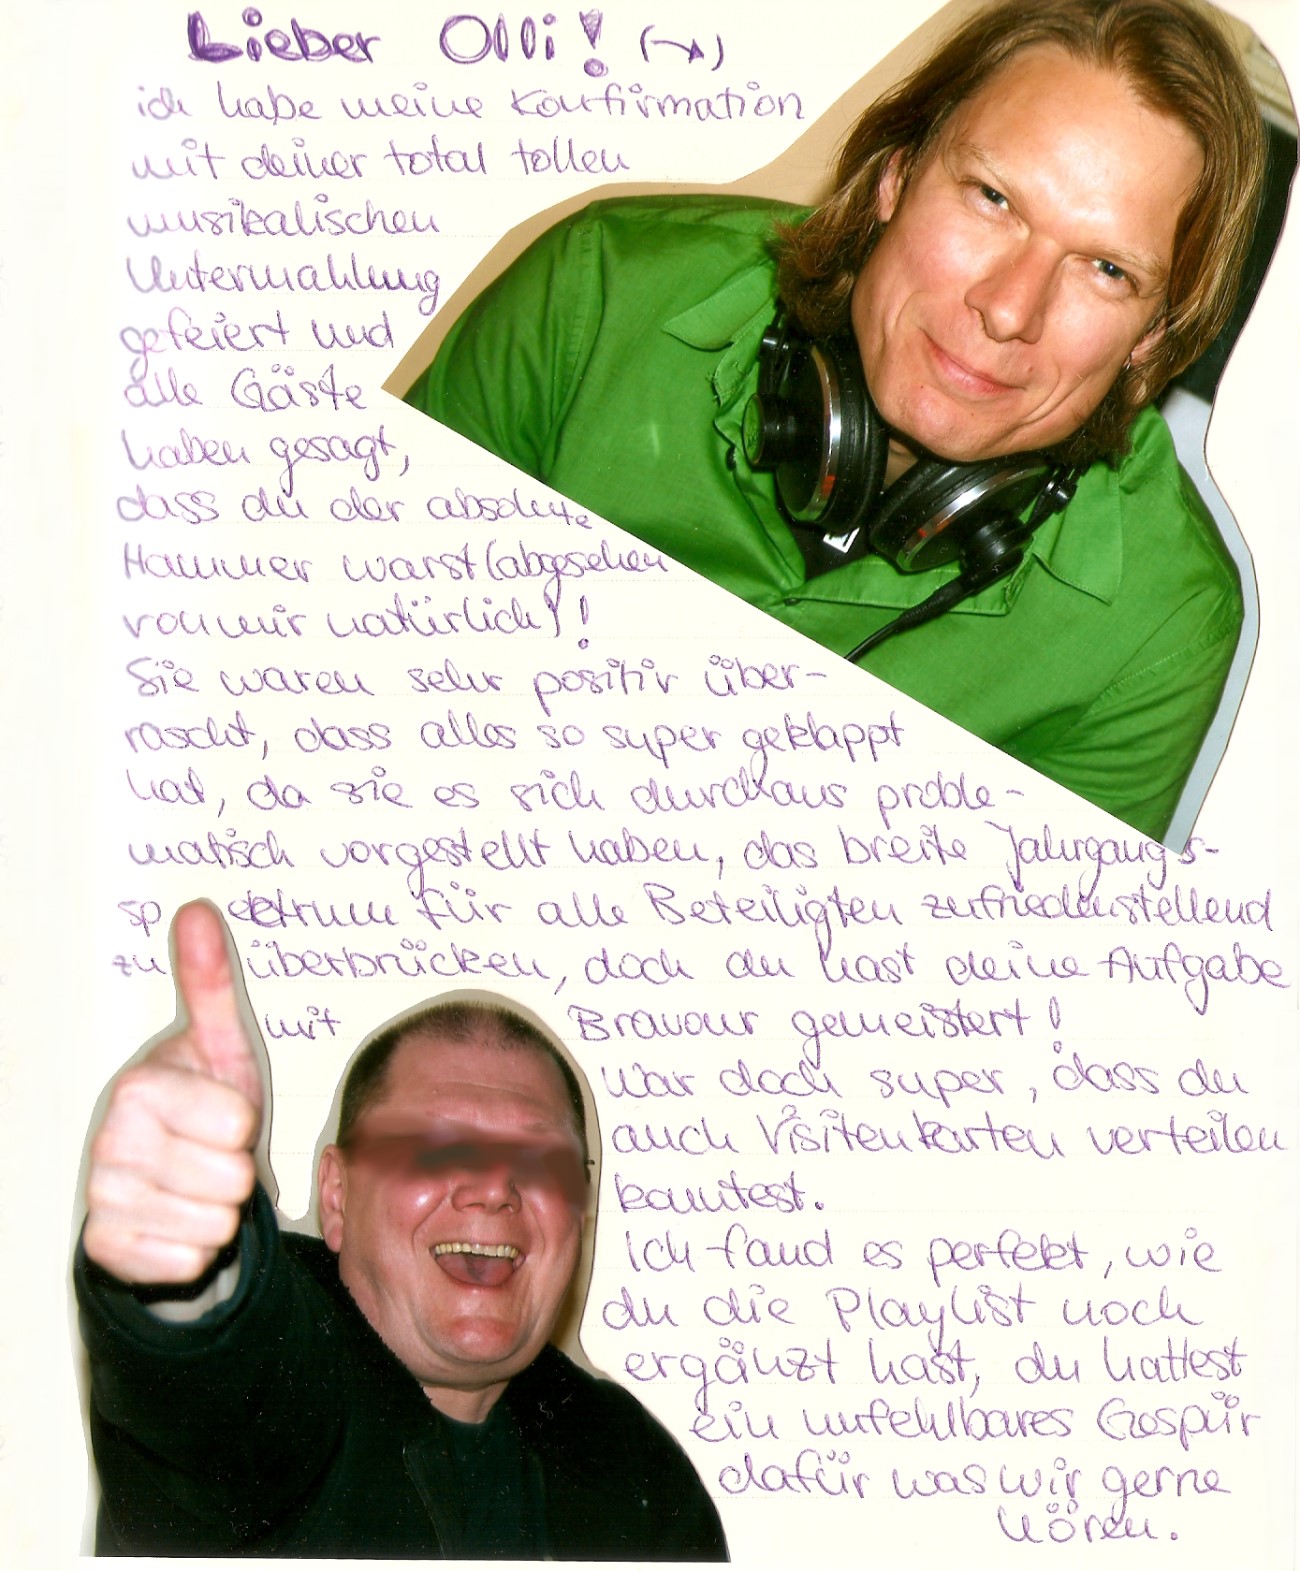 Lieber Olli! (→)
ich habe meine Konfirmation
mit deiner total tollen
musikalischen
Untermahlung
gefeiert und
alle Gäste
haben gesagt,
dass du der absolute
Hammer warst (abgesehen
von mir natürlich)!
Sie waren sehr positiv über-
rascht, dass alles so super geklappt
hat, da sie es sich durchaus proble-
matisch vorgestellt haben, das breite Jahrgangs-
spektrum für alle Beteiligten zufriedenstellend
zu überbrücken, doch du hast deine Aufgabe
mit Bravour gemeistert!
War doch super, dass du
auch Visitenkarten verteilen
konntest.
Ich fand es perfekt, wie
du die Playlist noch
ergänzt hast, du hattest
ein unfehlbares Gespür
dafür was wir gerne
hören.